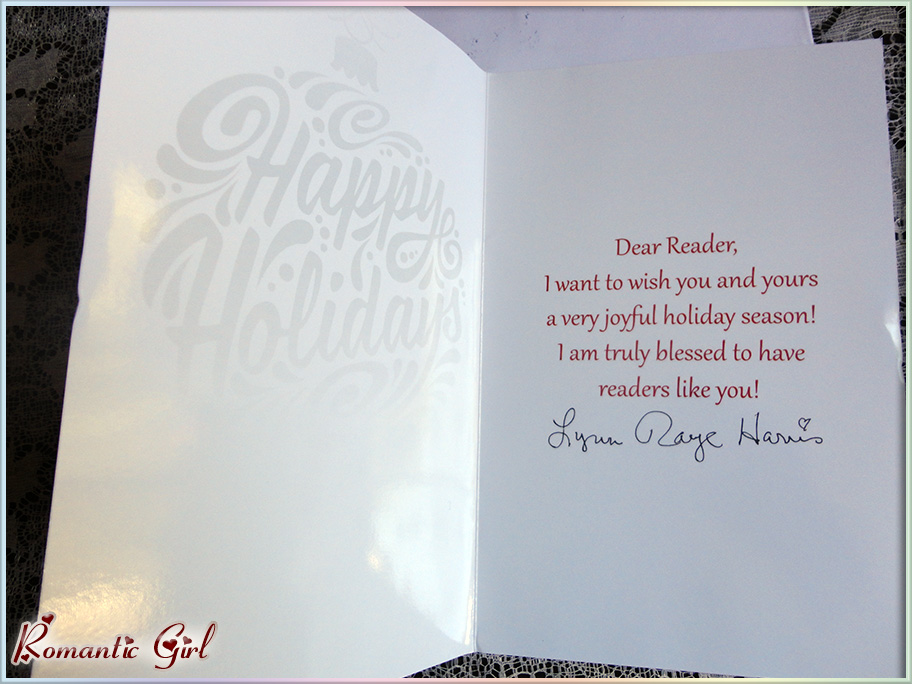 Happy
Holidays
Dear Reader,
I want to wish you and yours
a very joyful holiday season!
I am truly blessed to have
readers like you!
Lynn Raye Harris
Romantic Girl